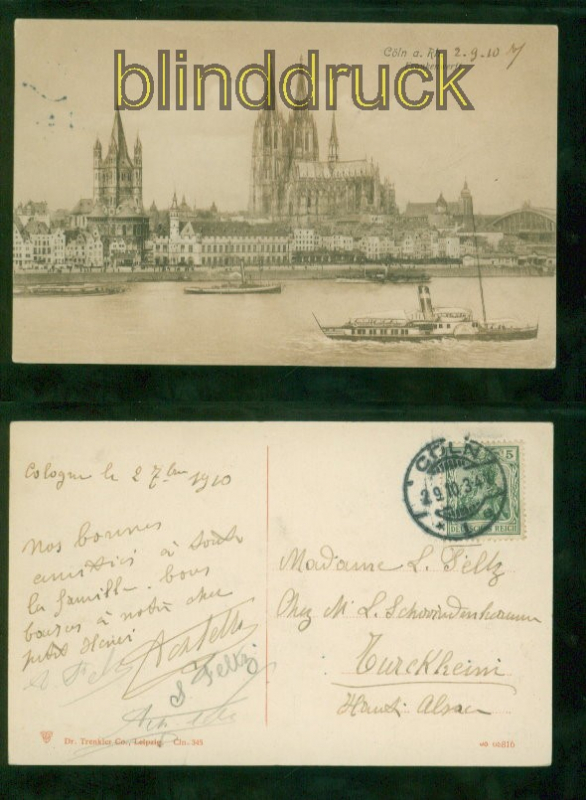 Cöln a. Rh. 2.9.10
blinddruck
Cologne le 2 7bre 1910
Nos bonnes
amitiés à toute
la famille. bons
baisers à notre cher
petit Henri
S. Feltz
CÖLN
2.9.10.3-4
* 1
5
DEUTSCHES REICH
Madame L. Feltz
Chez Mr L. Schwindenhammer
Turckheim
Haute Alsace
Dr. Trenkler Co., Leipzig. Cln. 345